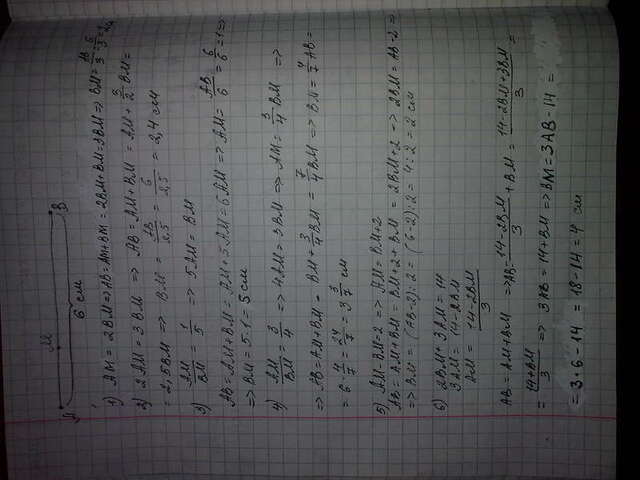 A M B
6 см
1) AM = 2BM => AB = AM + BM = 2BM + BM = 3BM => BM = AB/3 = 6/3 = 2 см
2) 2AM = 3BM => AB = AM + BM = AM + 3/2 BM =
= 2,5BM => BM = AB/2,5 = 6/2,5 = 2,4 см
3) AM/BM = 1/5 => 5AM = BM
AB = AM + BM = AM + 5AM = 6AM => AM = AB/6 = 6/6 = 1 =>
=> BM = 5·1 = 5 см
4) AM/BM = 3/4 => 4AM = 3BM => AM = 3/4 BM =>
=> AB = AM + BM = BM + 3/4 BM = 7/4 BM => BM = 4/7 AB =
= 6 4/7 = 24/7 = 3 3/7 см
5) AM - BM = 2 => AM = BM + 2
AB = AM + BM = BM + 2 + BM = 2BM + 2 => 2BM = AB - 2 =>
=> BM = (AB - 2) : 2 = (6 - 2) : 2 = 4 : 2 = 2 см
6) 2BM + 3AM = 14
3AM = 14 - 2BM
AM = 14 - 2BM/3
AB = AM + BM => AB = 14 - 2BM/3 + BM = 14 - 2BM + 3BM/3 =
= 14 + BM/3 => 3AB = 14 + BM => BM = 3AB - 14 =
= 3·6 - 14 = 18 - 14 = 4 см